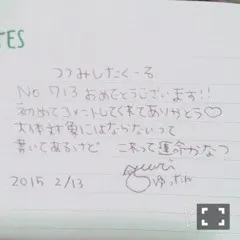 TES
つつみしたくーる
No 713 おめでとうございます!!
初めてコメントしてくれてありがとう♡
大体対象にはならないって
書いてあるけど これって運命かな?
yuuri
2015 2/13 ゆったん